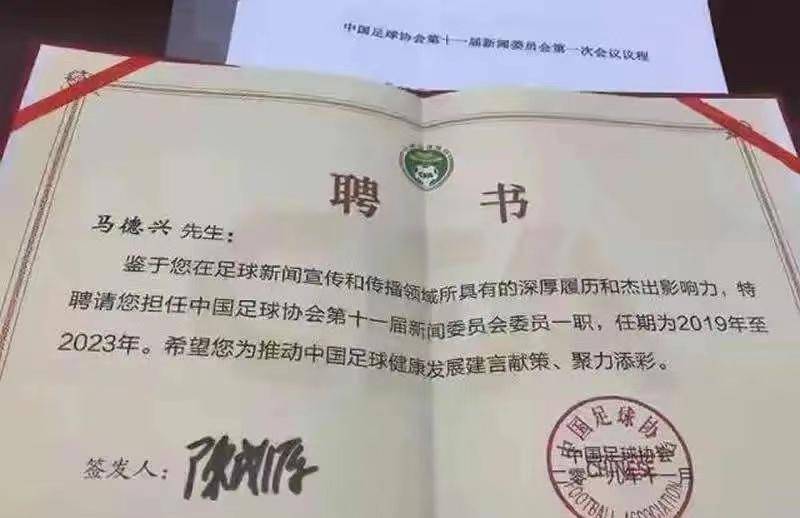 中国足球协会第十一届新闻委员会第一次会议议程
聘 书
马德兴 先生：
鉴于您在足球新闻宣传和传播领域所具有的深厚履历和杰出影响力，特
聘请您担任中国足球协会第十一届新闻委员会委员一职，任期为2019年至
2023年。希望您为推动中国足球健康发展建言献策、聚力添彩。
签发人：
中国足球协会
中国足球协会
FOOTBALL ASSOCIATION